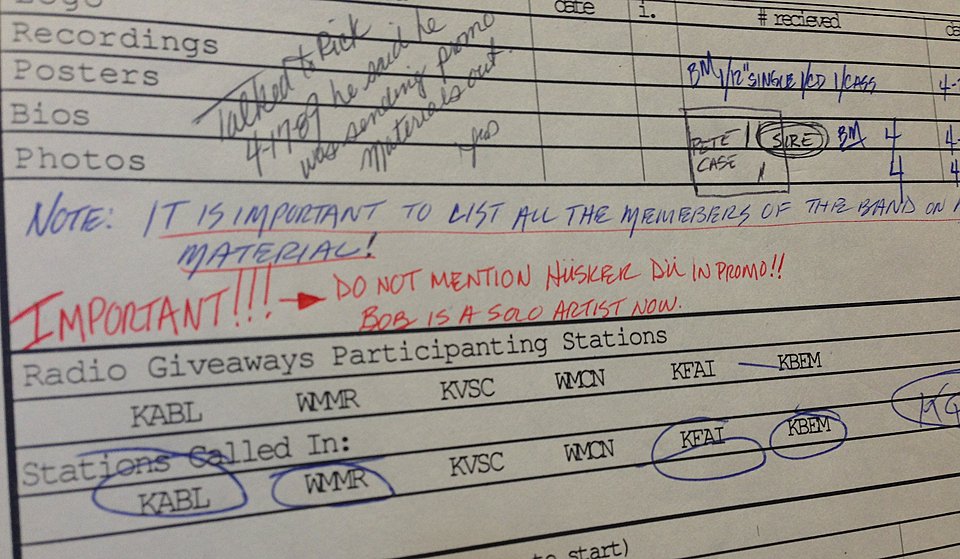 Logo
date i. # recieved
Recordings
Posters
BM 1/12" SINGLE 1/CD 1/CASS 4-
Bios
Photos
Talked to Rick
4-17-89 he said he
was sending promo
materials out.
PETE 1 SIRE BM 4 4-
CASE 1 4 4
NOTE: IT IS IMPORTANT TO LIST ALL THE MEMEBERS OF THE BAND ON
MATERIAL!
IMPORTANT!!! → DO NOT MENTION HÜSKER DÜ IN PROMO!!
BOB IS A SOLO ARTIST NOW.
Radio Giveaways Participanting Stations
KABL WMMR KVSC WMCN KFAI KBEM
Stations Called In:
KABL WMMR KVSC WMCN KFAI KBEM
to start)